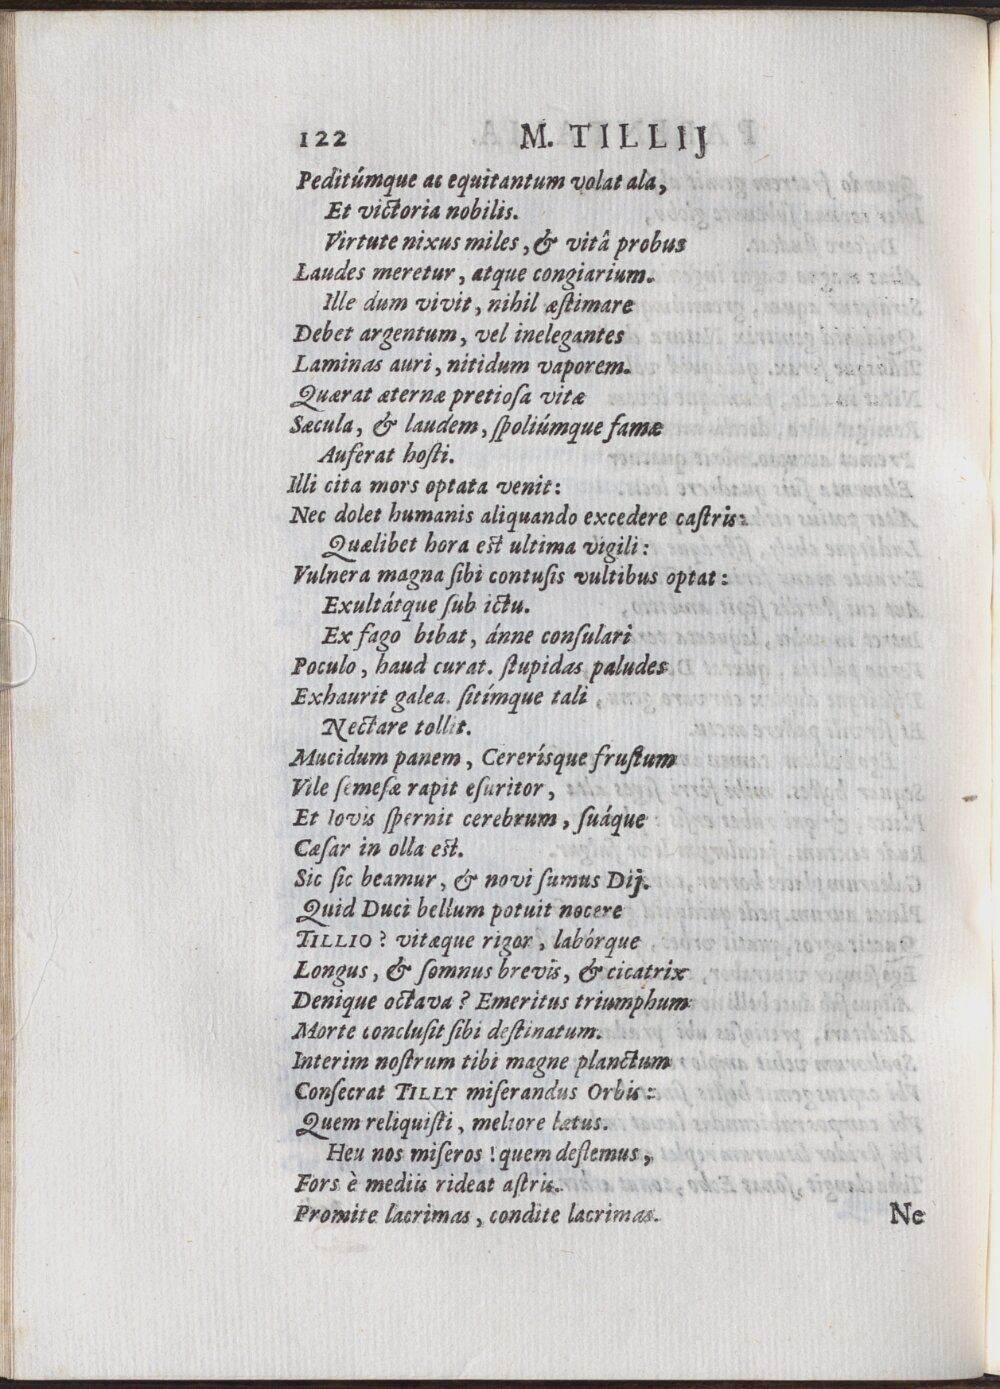 122 M. TILLIJ
Peditúmque ac equitantum volat ala,
Et victoria nobilis.
Virtute nixus miles, & vitâ probus
Laudes meretur, atque congiarium.
Ille dum vivit, nihil æſtimare
Debet argentum, vel inelegantes
Laminas auri, nitidum vaporem.
Quærat æternæ pretioſa vitæ
Sæcula, & laudem, ſpoliúmque famæ
Auferat hoſti.
Illi cita mors optata venit:
Nec dolet humanis aliquando excedere caſtris:
Quælibet hora est ultima vigili:
Vulnera magna ſibi contuſis vultibus optat:
Exultátque ſub ictu.
Ex fago bibat, ánne conſulari
Poculo, haud curat. ſtupidas paludes
Exhaurit galea. ſitímque tali
Nectare tollit.
Mucidum panem, Cererísque fruſtum
Vile ſemeſæ rapit eſuritor,
Et Iovis ſpernit cerebrum, ſuáque
Cæſar in olla est.
Sic ſic beamur, & novi ſumus Dij.
Quid Duci bellum potuit nocere
TILLIO? vitæque rigor, labórque
Longus, & ſomnus brevis, & cicatrix
Denique octava? Emeritus triumphum
Morte concluſit ſibi deſtinatum.
Interim noſtrum tibi magne planctum
Conſecrat TILLY miſerandus Orbis:
Quem reliquiſti, meliore lætus.
Heu nos miſeros! quem deflemus,
Fors è mediis rideat aſtris.
Promite lacrimas, condite lacrimas.
Ne